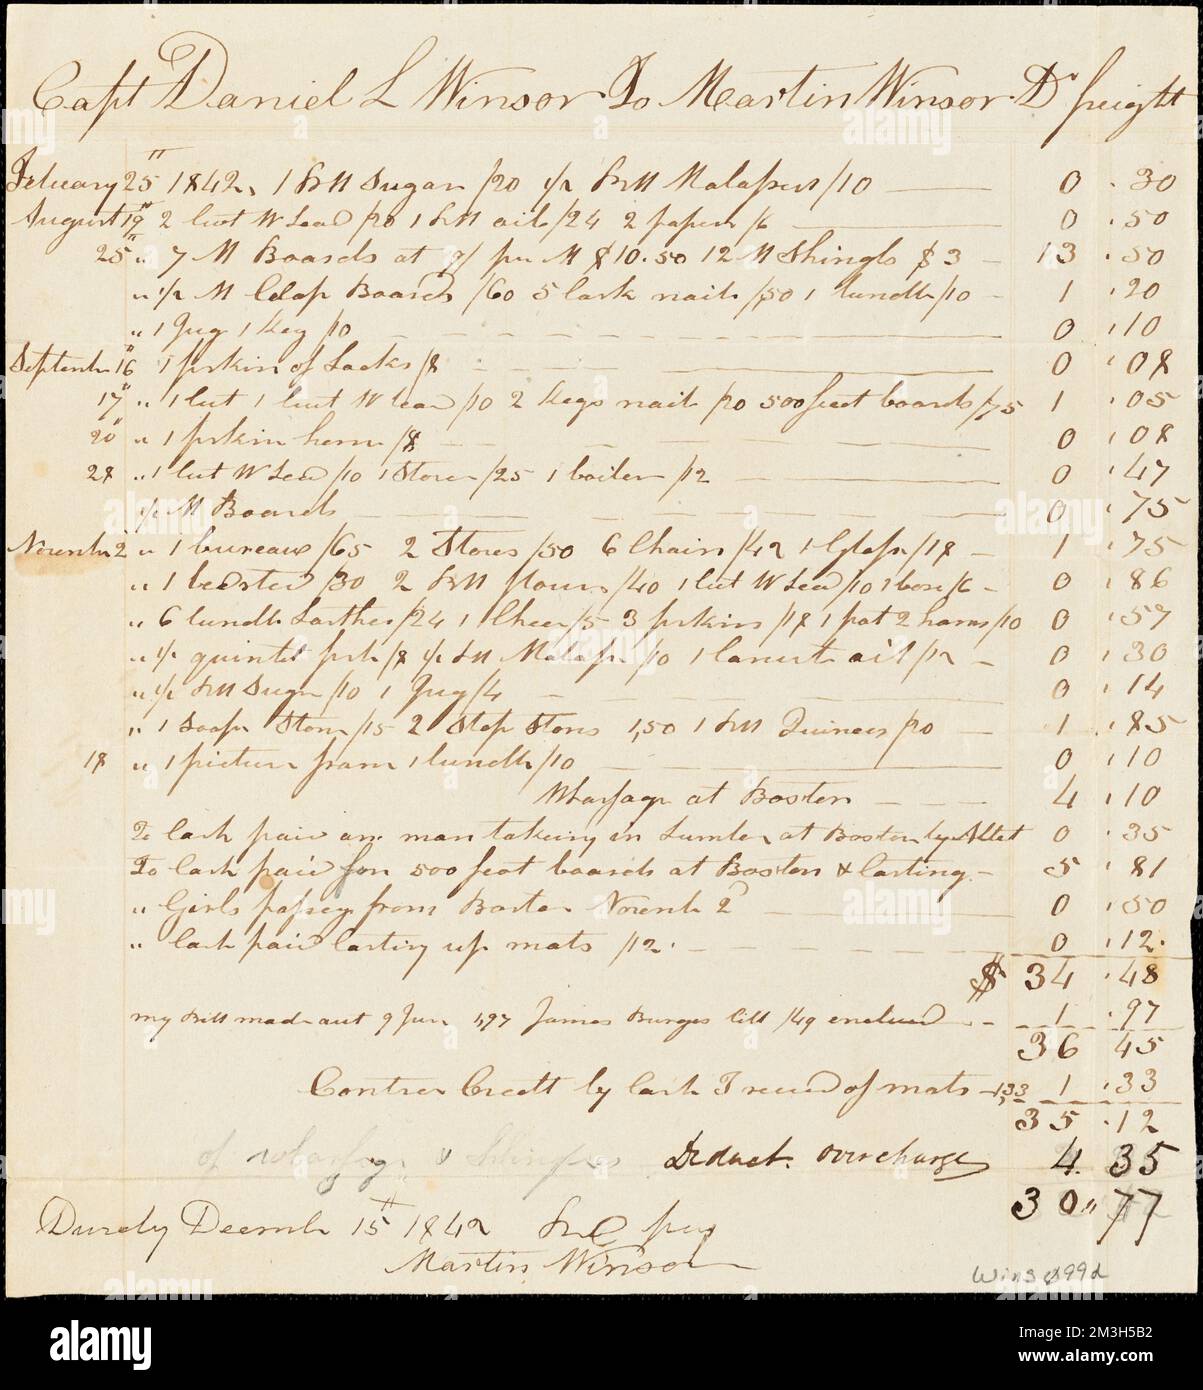 Capt Daniel L Winsor To Martin Winsor Dr freight
February 25" 1842, 1 bbll Sugar /20 1/2 bbll Molasses /10 0.30
August 19" 2 W Lead /20 1 bbll oile /24 2 papers /6 0.50
25" " 7 M Boards at 9/ per M $10.50 12 M Shingls $3 13.50
" 1/2 M Clap Boards /60 5 Cask nails /50 1 bundle /10 1.20
" 1 Jug 1 Keg /10 0.10
September 16" 1 firkin of Locks /8 0.08
17" " 1 W Lead /10 2 Kegs nails /20 500 feet boards /75 1.05
20" " 1 firkin /8 0.08
28 " W Lead /10 1 Stove /25 1 boiler /12 0.47
1/2 M Boards 0.75
Novembr 2 " 1 bureaw /65 2 Stoves /50 6 Chairs /42 1 Glass /18 1.75
" 1 /30 2 bbll flour /40 W Lead /10 1 box /6 0.86
" 6 bundle Larthes /24 1 Chees /5 3 firkins /18 1 pot 2 hams /10 0.57
" 1/2 quintel fish /8 1/2 bbll Molass /10 1 oil /12 0.30
" 1/2 bbll Sugar /10 1 Jug /4 0.14
" 1 Soap Stone /15 2 Step Stones 1,50 1 bbll Quinces /20 1.85
18 " 1 picture fram 1 bundle /10 0.10
Wharfage at Boston 4.10
To Cash paid man takeing in Lumber at Boston by 0.35
To Cash paid for 500 feet boards at Boston & Carting 5.81
" Girls passage from Boston Novembr 2d 0.50
" Cash paid Carting up mats /12 0.12
$ 34.48
my Bill made out 9 June 1,97 James Burges bill /49 enclosed 1.97
36 45
Contra Credt by Cash I receivd of mats 1,33 1.33
35.12
of wharfage & Shingles Deduct. overcharge 4.35
30.77
Decembr 15" 1842
Martin Winsor
alamy
Image ID: 2M3H5B2
www.alamy.com